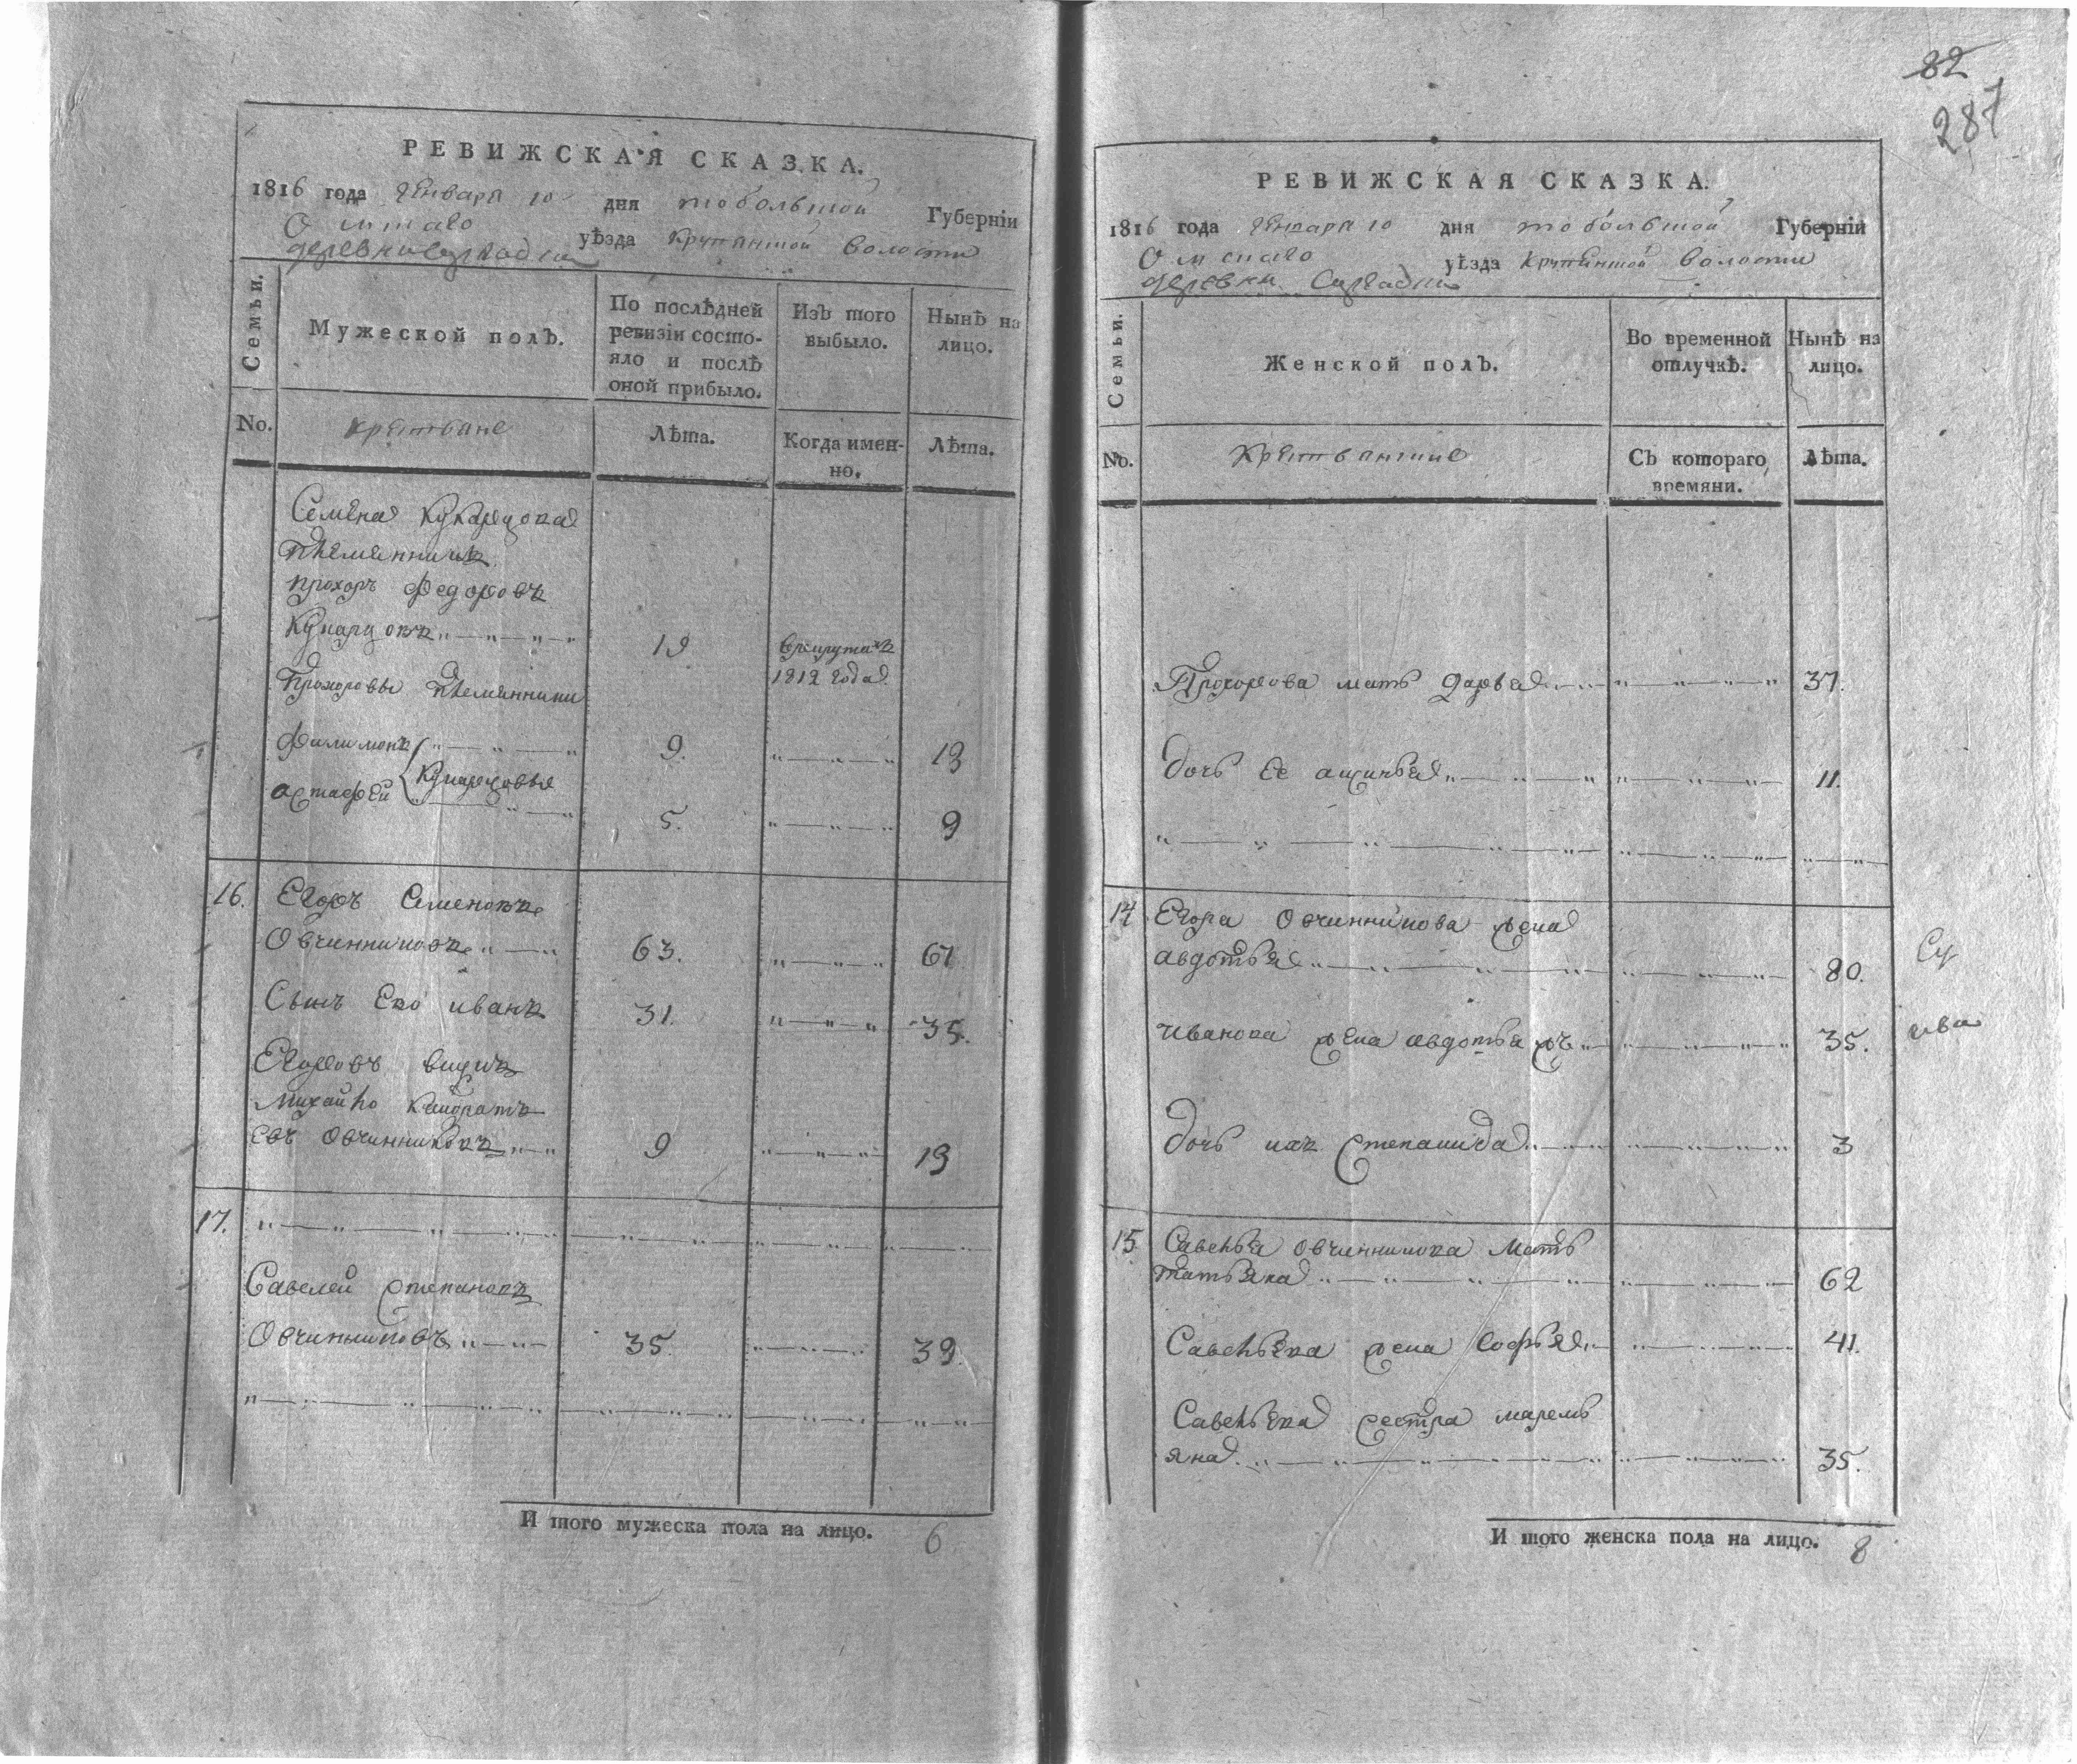 РЕВИЖСКАЯ СКАЗКА.
1816 года Генваря 10 дня тобольской Губернїи
Омскаго уѣзда Крупянской волости
деревни
Семьи.
Мужеской полъ.
По послѣдней ревизїи состо-
яло и послѣ
оной прибыло.
Изъ того
выбыло.
Нынѣ на
лицо.
No.
крестьяне
Лѣта.
Когда имен-
но.
Лѣта.
Семена
племянникъ
прохоръ Федоровъ
19
в рекрутахъ
1812 года
Прохоровы племянники
Филимонъ 9. 13
астафей 5. 9
16. Егоръ Семеновъ
Овчинниковъ 63. 67
Сынъ Ево иванъ 31. 35.
Егоровъ внукъ
Михайло Кандрать
евъ Овчинниковъ 9 13
17.
Савелей степановъ
Овчинниковъ 35. 39.
И того мужеска пола на лицо. 6
82
287
РЕВИЖСКАЯ СКАЗКА.
1816 года Генваря 10 дня тобольской Губернїи
Омскаго уѣзда Крупянской волости
деревни
Семьи.
Женской полъ.
Во временной
отлучкѣ.
Нынѣ на
лицо.
No.
Крестьянские
Съ котораго
времяни.
Лѣта.
Прохорова мать дарья 37.
дочь Ее 11.
14 Егора Овчинникова жена
авдотья 80.
Иванова жена авдотья 35.
дочь ихъ Степанида 3
15 Савелья овчинникова мать
татьяна 62
Савельева жена софья 41.
Савельева сестра маремь
яна 35.
И того женска пола на лицо. 8